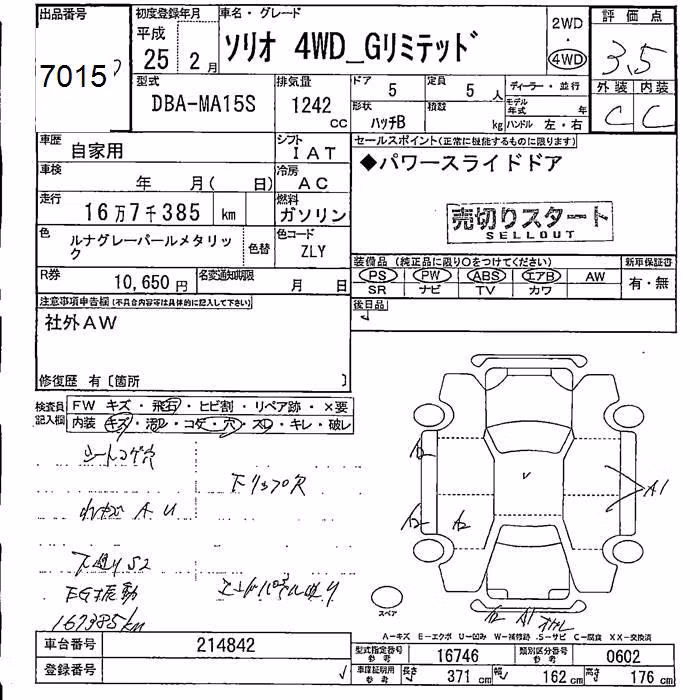 出品番号
7015
初度登録年月
平成
25年 2月
車名・グレード
ソリオ 4WD_Gリミテッド
2WD
・
4WD
評価点
3.5
外装 内装
C C
型式
DBA-MA15S
排気量
1242
CC
ドア 5
定員 5 人
形状 ハッチB
積数 kg
ディーラー・並行
モデル年式 年
ハンドル 左・右
車歴 自家用
シフト IAT
車検 年 月( 日)
冷房 AC
走行 16万7千385 km
燃料 ガソリン
色 ルナグレーパールメタリック
色替
色コード ZLY
R券 10,650円
名変通知期限 月 日
セールスポイント(正常に機能するものに限ります)
◆パワースライドドア
売切りスタート
SELLOUT
装備品(純正品に限り○をつけてください)
PS PW ABS エアB AW
SR ナビ TV カワ
新車保証書
有・無
後日品
注意事項申告欄(不具合内容等は具体的に記入して下さい)
社外AW
修復歴 有〔箇所 〕
検査員記入欄
FW キズ・飛石・ヒビ割・リペア跡・×要
内装 キズ・汚レ・コゲ・穴・スレ・キレ・破レ
シートコゲ穴
下リップ欠
A U
下廻りS2
EG振動
167385km
A2
A2
A2
A1
A2 A1
スペア
A-キズ E-エクボ U-凹み W-補修跡 S-サビ C-腐食 XX-交換済
車台番号 214842
登録番号
型式指定番号 参考 16746
類別区分番号 参考 0602
車庫証明用 参考 長さ 371 cm 幅 162 cm 高さ 176 cm